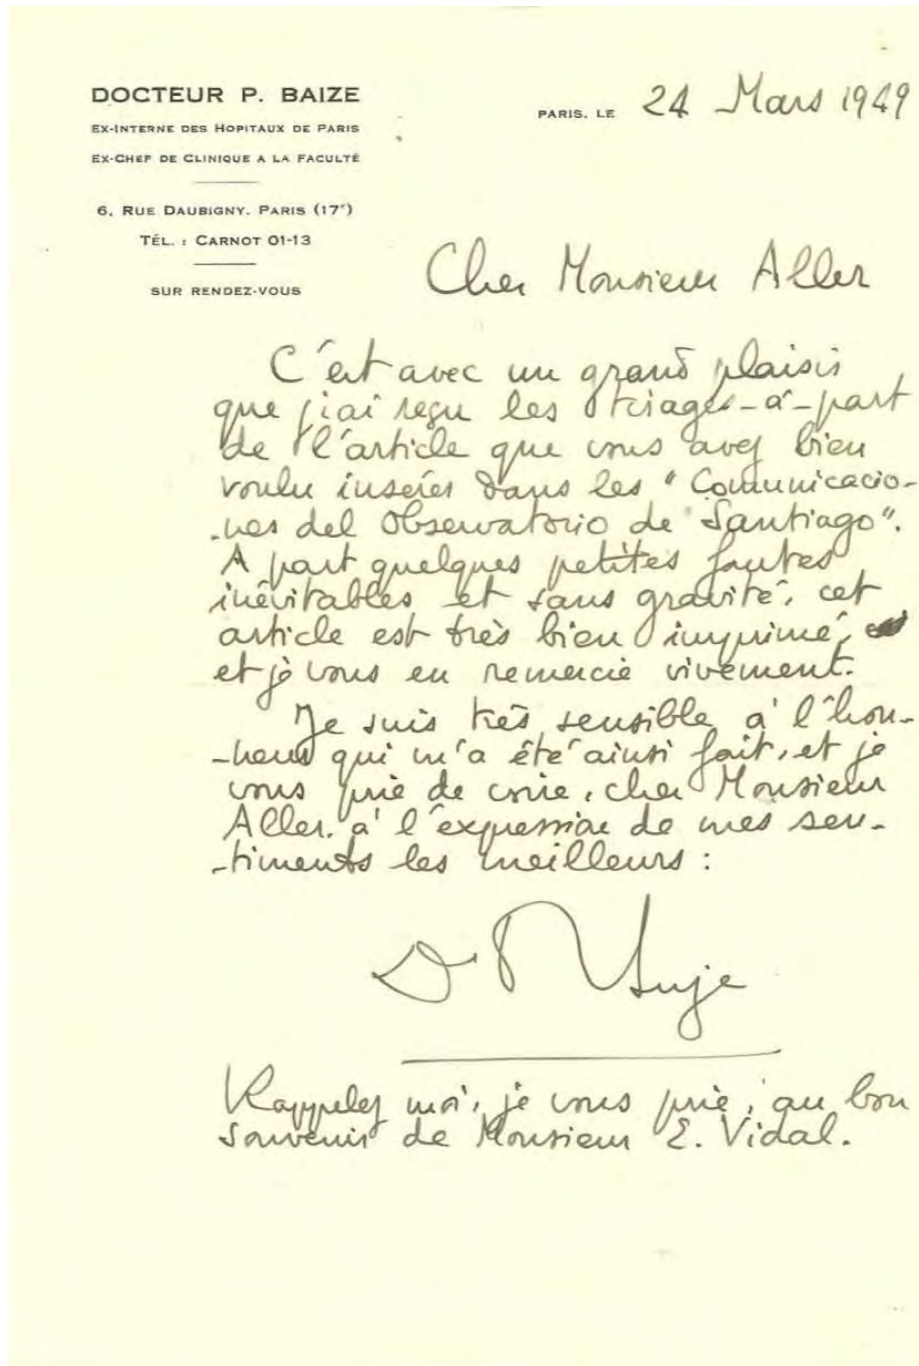 DOCTEUR P. BAIZE
EX-INTERNE DES HOPITAUX DE PARIS
EX-CHEF DE CLINIQUE A LA FACULTÉ
6, RUE DAUBIGNY. PARIS (17e)
TÉL. : CARNOT 01-13
SUR RENDEZ-VOUS
PARIS, LE 24 Mars 1949
Cher Monsieur Aller
C'est avec un grand plaisir
que j'ai reçu les tirages-à-part
de l'article que vous avez bien
voulu insérer dans les "Comunicacio-
-nes del Observatorio de Santiago".
A part quelques petites fautes
inévitables et sans gravité, cet
article est très bien imprimé,
et je vous en remercie vivement.
Je suis très sensible à l'hon-
-neur qui m'a été ainsi fait, et je
vous prie de croire, cher Monsieur
Aller, à l'expression de mes sen-
-timents les meilleurs :
Dr P Baize
Rappelez moi, je vous prie, au bon
souvenir de Monsieur E. Vidal.